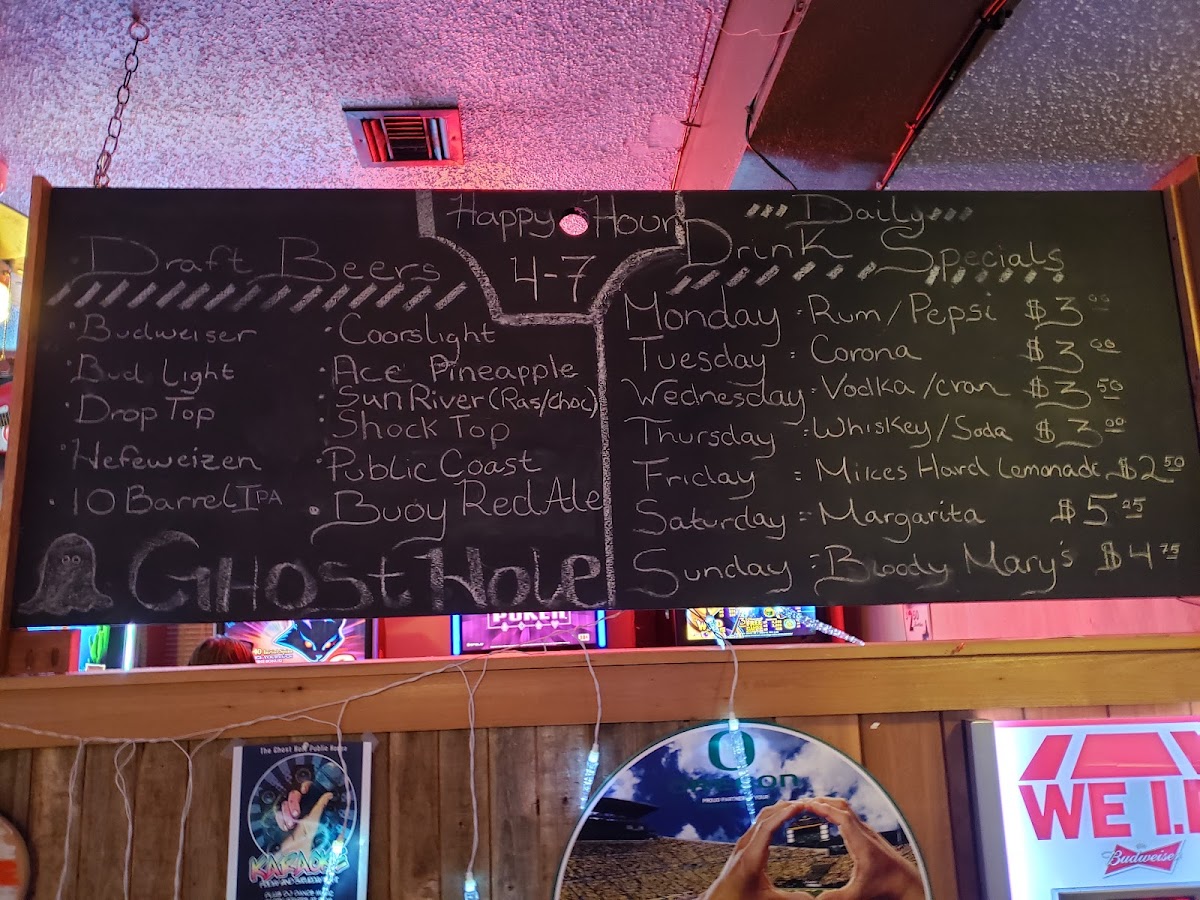 Happy Hour
4-7
Draft Beers
Budweiser
Bud Light
Drop Top
Hefeweizen
10 Barrel IPA
Coorslight
Ace Pineapple
Sun River (Ras/choc)
Shock Top
Public Coast
Buoy Red Ale
GHOSt Hole
Daily
Drink Specials
Monday Rum/Pepsi $3.00
Tuesday : Corona $3.00
Wednesday: Vodka/cran $3.50
Thursday : Whiskey/Soda $3.00
Friday : Mikes Hard Lemonade $2.50
Saturday = Margarita $5.25
Sunday = Bloody Mary's $4.75
POKER
The Ghost Hole Public House
KARAOKE
FRIDAY AND SATURDAY
O
PROUD PARTNER
WE I.
Budweiser